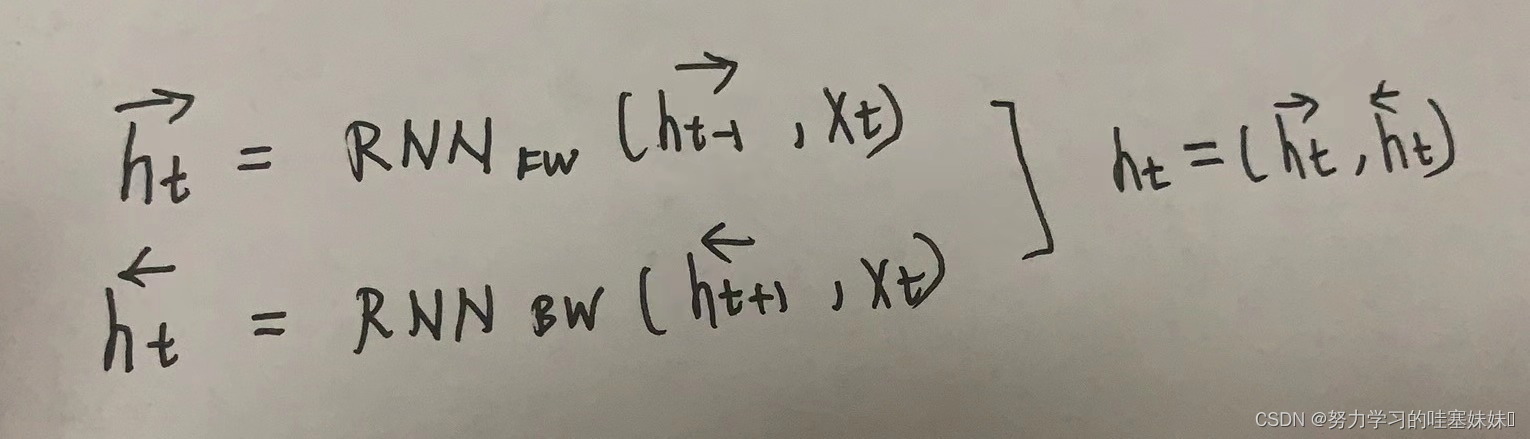 $\overrightarrow{h_t} = RNN_{FW} (\overrightarrow{h_{t-1}}, X_t)$
$\overleftarrow{h_t} = RNN_{BW} (\overleftarrow{h_{t+1}}, X_t)$
$] \; h_t = (\overrightarrow{h_t}, \overleftarrow{h_t})$
CSDN @努力学习的哇塞妹妹